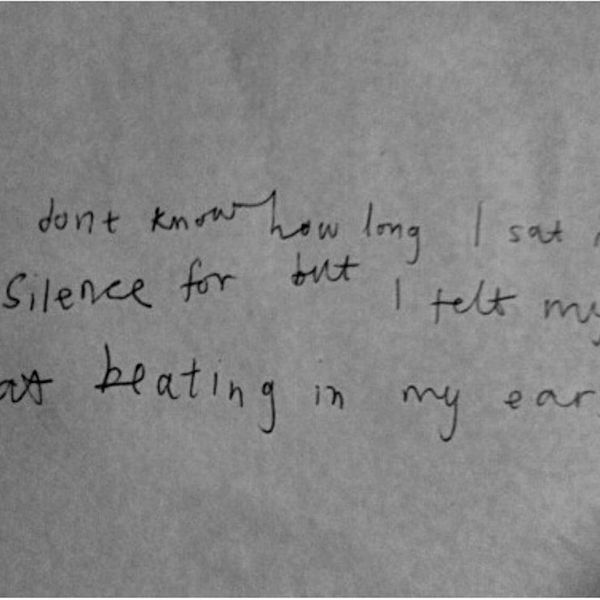 dont know how long I sat
Silence for but I felt my
beating in my ear